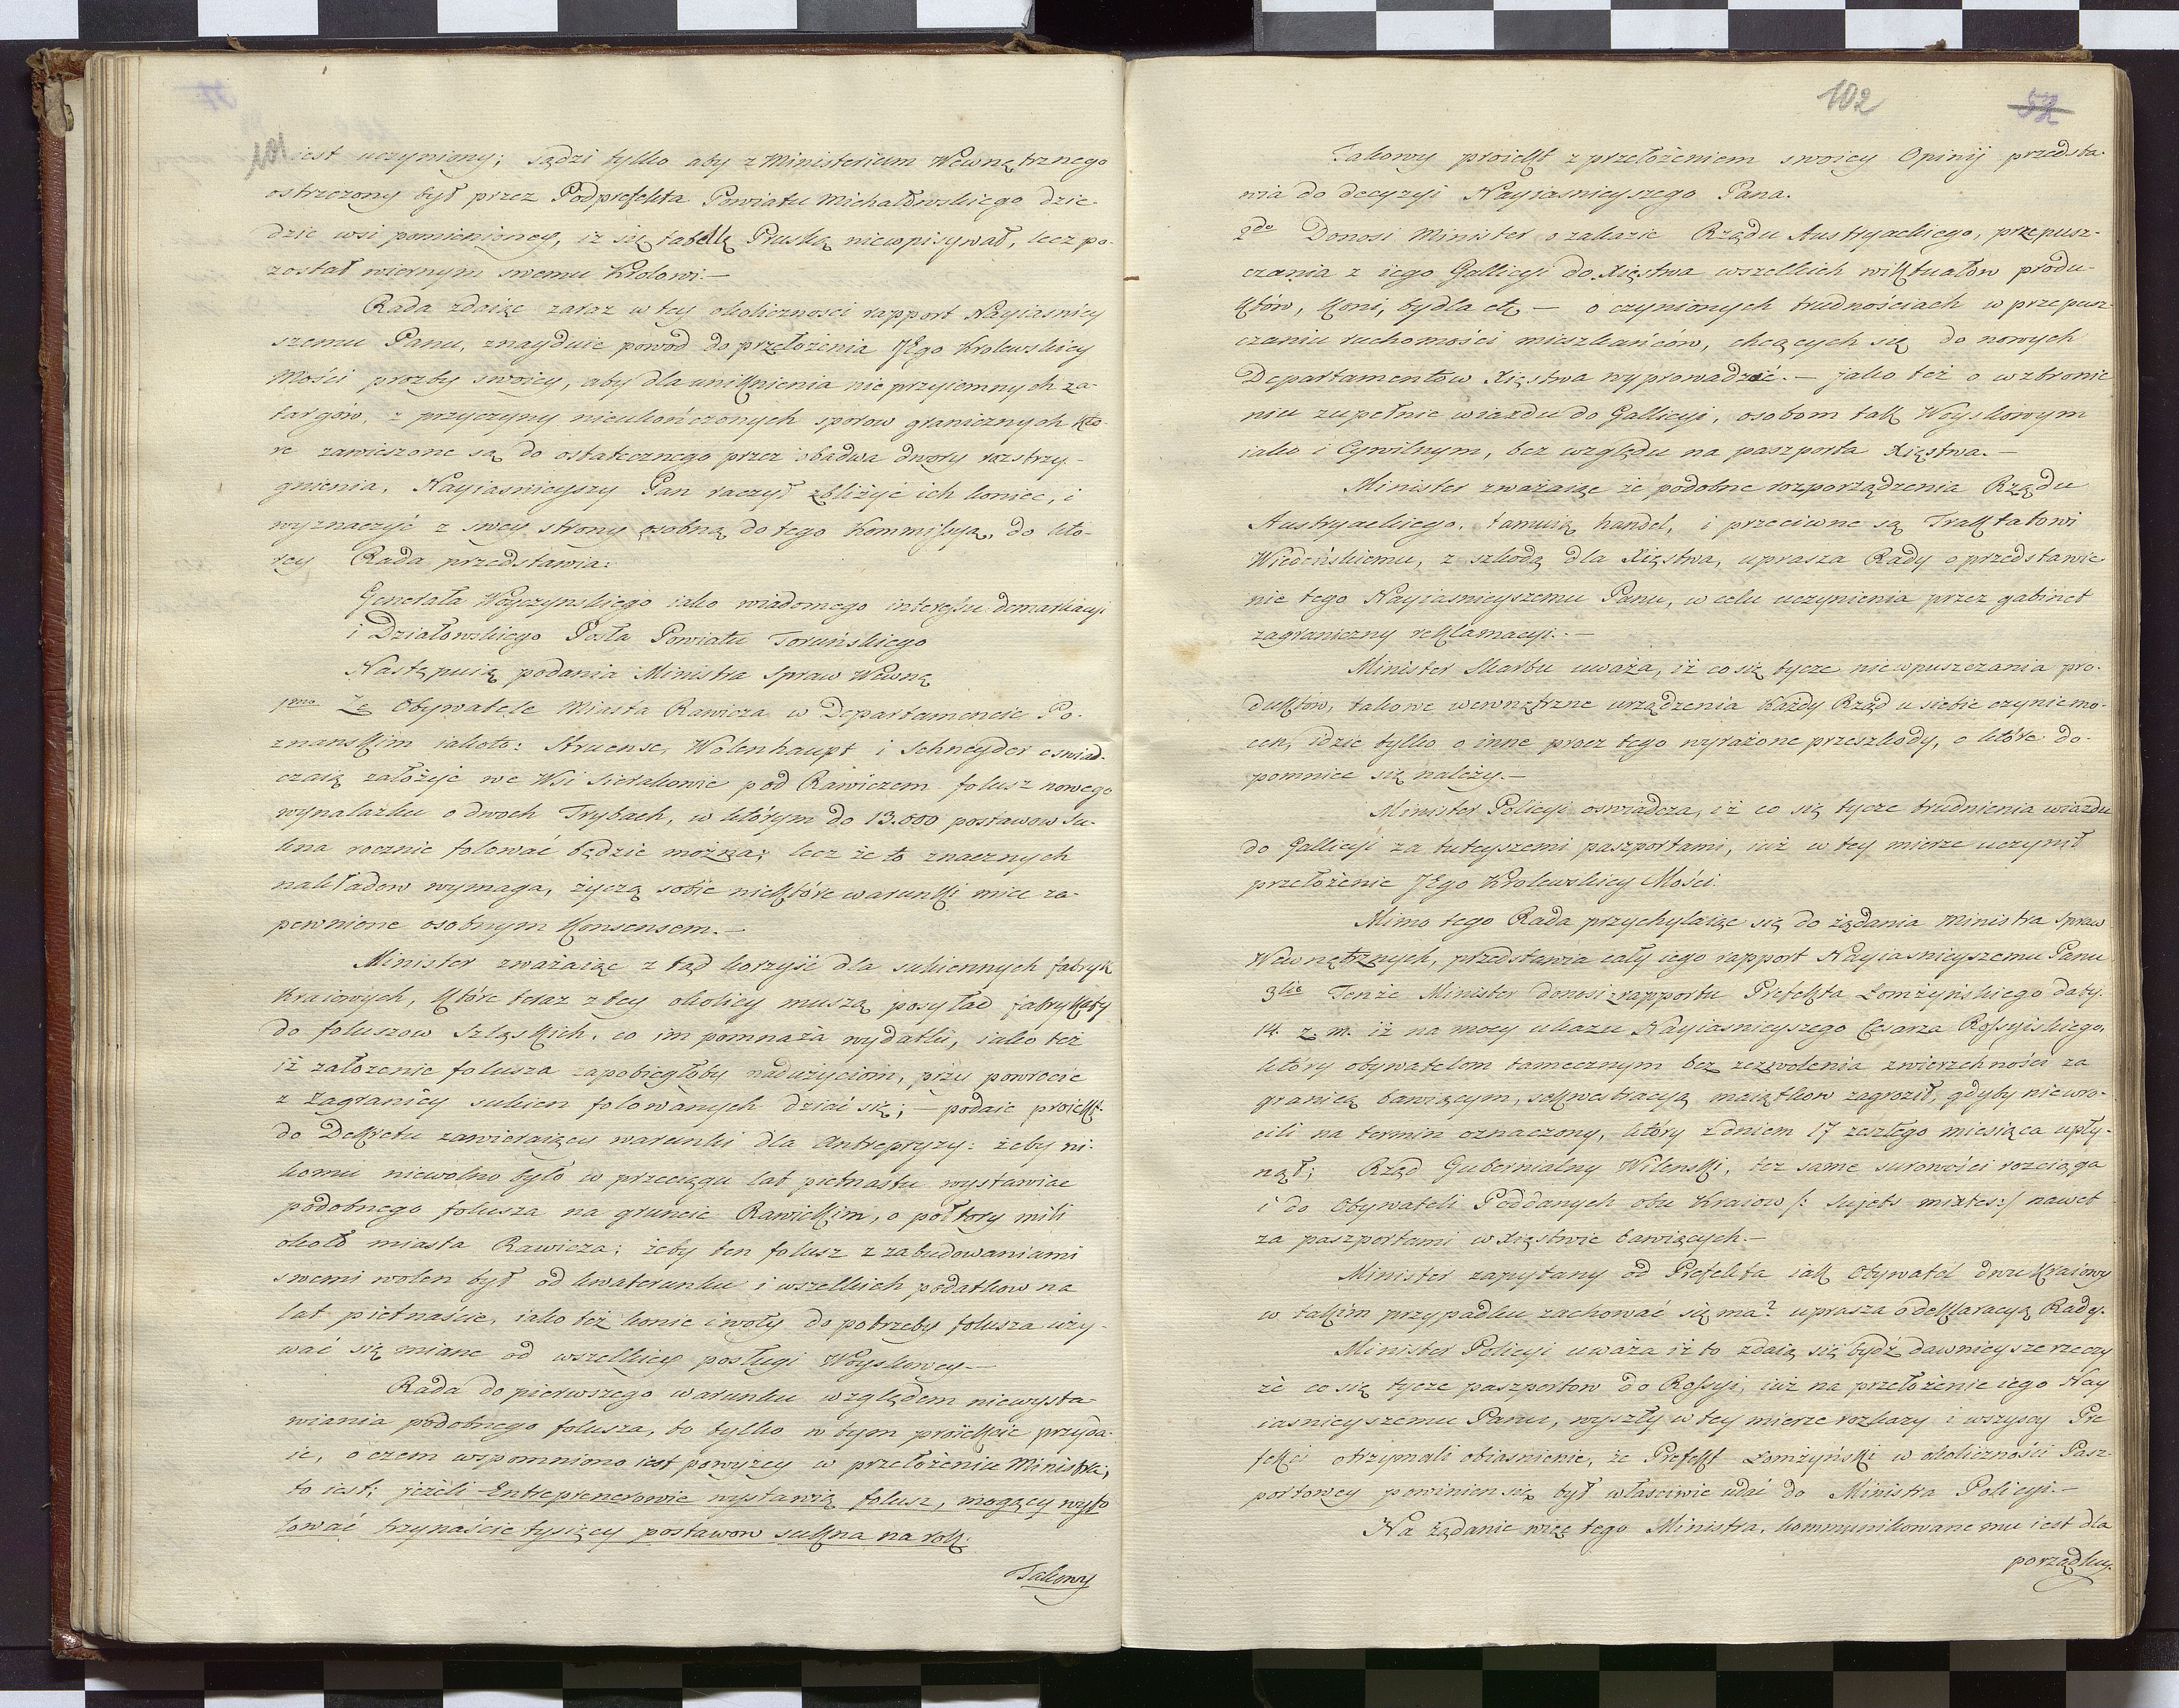 101
iest uczyniony; sądzi tylko aby z Ministerium Wewnętrznego
ostrzeżony był przez Podprefekta Powiatu Michałowskiego dzie-
dzic wsi pomienioney, iż się tabellą Pruską niewpisywał, lecz po-
został wiernym swemu Krolowi.—
Rada zdaiąc zaraz w tey okoliczności rapport Nayiaśniey
szemu Panu, znayduie powod do przełożenia JEgo Krolewskiey
Mości prozby swoiey, aby dla uniknienia nieprzyiemnych za-
targów, z przyczyny nieukończonych sporow granicznych kto-
re zawieszone są do ostatecznego przez obadwa dwory rozstrzy-
gnienia, Nayiasnieyszy Pan raczył zbliżyć ich koniec, i
wyznaczyć z swey strony osobną do tego Kommissyą, do kto-
rey Rada przedstawia:
Generała Woyczynskiego iako wiadomego interessu demarkacyi
i Działowskiego Posła Powiatu Toruńskiego
Następuią podania Ministra Spraw Wewnę
1mo Że Obywatele Miasta Rawicza w Departamencie Po-
znanskim iakoto: Struense, Wolenhaupt i Schneyder oswiad-
czaią założyć we Wsi Sierakowie pod Rawiczem folusz nowego
wynalazku o dwoch Trybach, w którym do 13.000 postawow Su-
kna rocznie folować będzie można; lecz że to znacznych
nakładow wymaga, życzą sobie niektóre warunki mieć za-
pewnione osobnym Konsensem.—
Minister zważaiąc z tąd korzyść dla sukiennych fabryk
Kraiowych, które teraz z tey okolicy muszą posyłać fabrykaty
do foluszow Szląskich, co im pomnaża wydatki, iako też
iż założenie folusza zapobiegłoby nadużyciom, przy powrocie
z zagranicy sukien folowanych dziać się; — podaie proiekt
do Dekretu zawieraiący warunki dla Antrepryzy: żeby ni-
komu niewolno było w przeciągu lat pietnastu wystawiać
podobnego folusza na gruncie Rawickim, o półtory mili
około miasta Rawicza; żeby ten folusz z zabudowaniami
swemi wolen był od kwaterunku i wszelkich podatkow na
lat pietnaście, iako też konie i woły do potrzeby folusza uży-
wać się miane od wszelkiey posługi Woyskowey.—
Rada do pierwszego warunku względem niewysta-
wiania podobnego folusza, to tylko w tym proiekcie przyda-
ie, o czem wspomniono iest powyżey w przełożeniu Ministra,
to iest; jeżeli Entreprenerowie wystawią folusz, mogący wyfo
lować trzynaście tysięcy postawow sukna na rok.
Takowy
102
52
Takowy proiekt z przełożeniem swoiey Opinij przedsta-
wia do decyzyi Nayiasnieyszego Pana.
2do Donosi Minister o zakazie Rządu Austryackiego, przepusz-
czania z iego Gallicyi do Xięstwa wszelkich wiktuałow produ-
któw, koni, bydła etc — o czynionych trudnościach w przepusz-
czaniu ruchomości mieszkańców, chcących się do nowych
Departamentow Xięstwa wyprowadzić.— jako też o wzbronie
niu zupełnie wiazdu do Gallicyi, osobom tak Woyskowym
iako i Cywilnym, bez względu na paszporta Xięstwa.—
Minister zważaiąc że podobne rozporządzenia Rządu
Austryackiego, tamuią handel, i przeciwne są Traktatowi
Wiedeńskiemu, z szkodą dla Xięstwa, uprasza Rady o przedstawie
nie tego Nayiasnieyszemu Panu, w celu uczynienia przez gabinet
zagraniczny reklamacyi.—
Minister Skarbu uważa, iż co się tycze niewpuszczania pro-
duktów, takowe wewnętrzne urządzenia Każdy Rząd u siebie czynić mo-
cen, idzie tylko o inne prócz tego wyrażone przeszkody, o które do-
pomnieć się należy.—
Minister Policyi oswiadcza, iż co się tycze trudnienia wiazdu
do Gallicyi za tuteyszemi paszportami, iuż w tey mierze uczynił
przełożenie JEgo Krolewskiey Mości.
Mimo tego Rada przychylaiąc się do żądania Ministra Spraw
Wewnętrznych, przedstawia cały iego rapport Nayiasnieyszemu Panu
3tio Tenże Minister donosi z rapportu Prefekta Łomżyńskiego daty.
14. z. m. iż na mocy ukazu Nayiasnieyszego Cesarza Rossyiskiego,
który obywatelom tamecznym bez zezwolenia zwierzchności za
granicą bawiącym, sekwestracyą maiątkow zagroził, gdyby niewro-
cili na termin oznaczony, który z dniem 17 zeszłego miesiąca upły-
nął; Rząd Gubernialny Wilenski, też same surowości rozciąga
i do Obywateli Poddanych obu Kraiow /: Sujets mixtes:/ nawet
za paszportami w Xięstwie bawiących.—
Minister zapytany od Prefekta iak Obywatel dwukraiowy
w takim przypadku zachować się ma? uprasza o deklaracyą Rady.
Minister Policyi uważa iż to zdaią się bydź dawnieysze rzeczy
że co się tycze paszportow do Rossyi, iuż na przełożenie iego Nay
iasnieyszemu Panu, wyszły w tey mierze rozkazy i wszyscy Pre
fekci otrzymali obiasnienie, że Prefekt Łomżyński w okoliczności Pasz-
portowey powinien się był własciwie udać do Ministra Policyi.—
Na żądanie więc tego Ministra, kommunikowane mu iest dla
porządku,